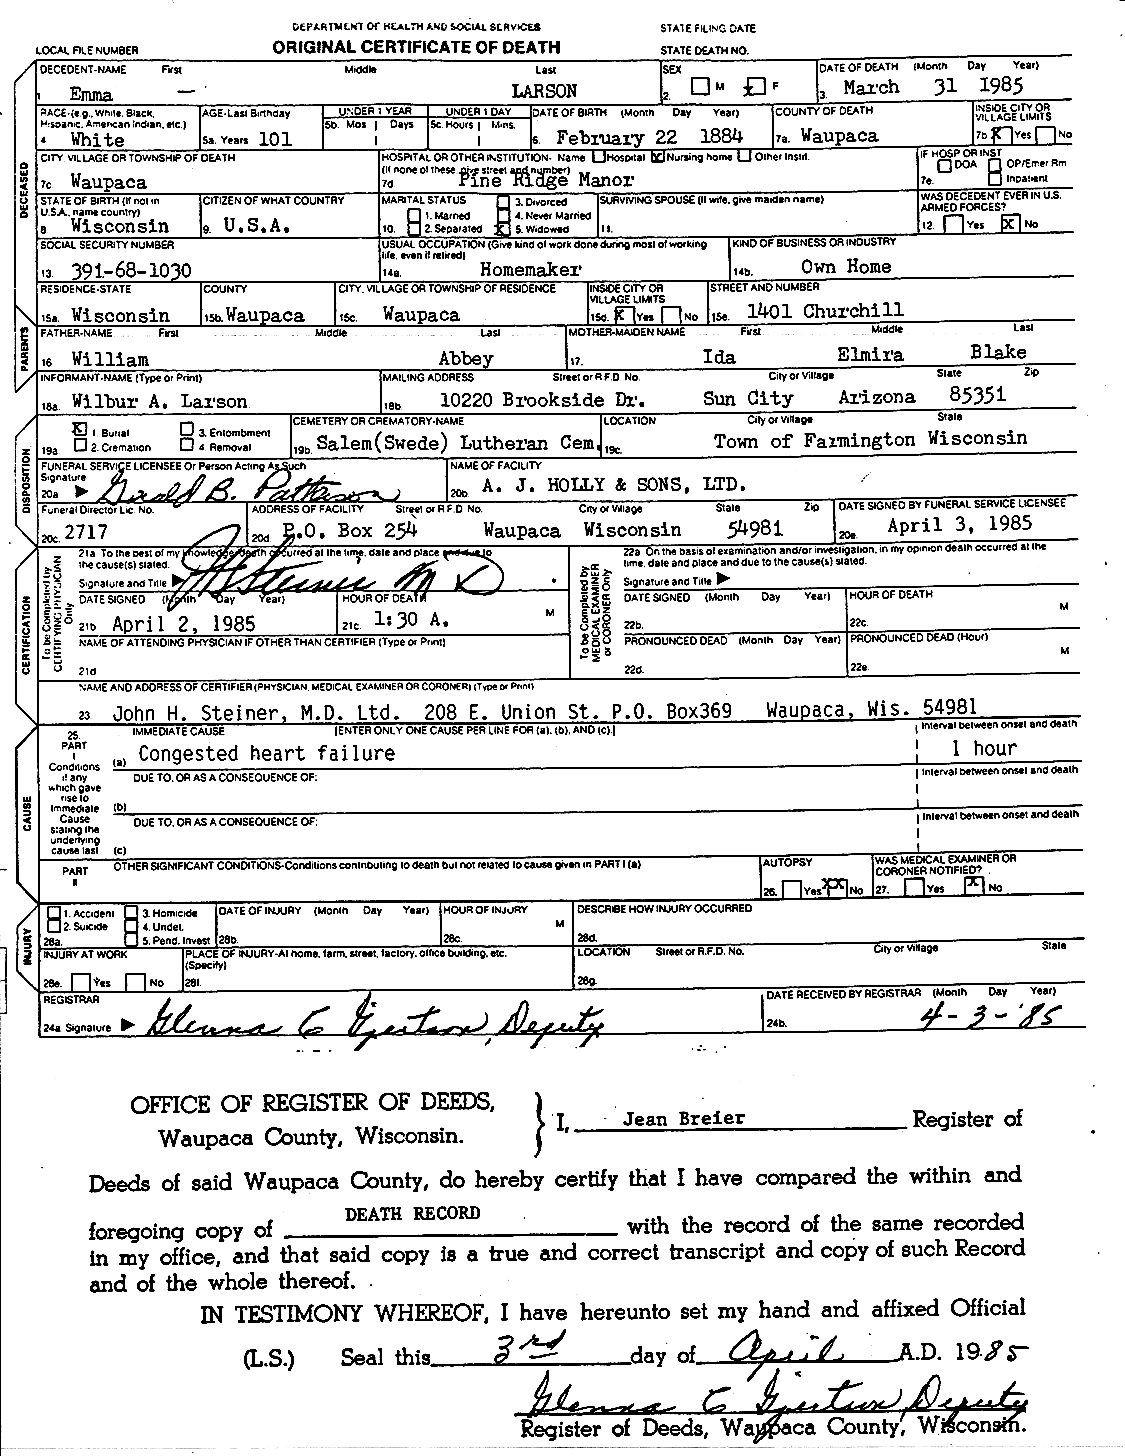 DEPARTMENT OF HEALTH AND SOCIAL SERVICES STATE FILING DATE
LOCAL FILE NUMBER ORIGINAL CERTIFICATE OF DEATH STATE DEATH NO.
DECEDENT-NAME First Middle Last SEX DATE OF DEATH (Month Day Year)
1 Emma — LARSON 2. M X F 3. March 31 1985
RACE-(e.g., White, Black, Hispanic, American Indian, etc.) AGE-Last Birthday UNDER 1 YEAR UNDER 1 DAY DATE OF BIRTH (Month Day Year) COUNTY OF DEATH INSIDE CITY OR VILLAGE LIMITS
4 White 5a. Years 101 5b. Mos Days 5c. Hours Mins. 6. February 22 1884 7a. Waupaca 7b X Yes No
CITY VILLAGE OR TOWNSHIP OF DEATH HOSPITAL OR OTHER INSTITUTION- Name Hospital X Nursing home Other Instit. IF HOSP OR INST
(If none of these give street and number) DOA OP/Emer Rm
7c Waupaca 7d Pine Ridge Manor 7e. Inpatient
STATE OF BIRTH (If not in U.S.A., name country) CITIZEN OF WHAT COUNTRY MARITAL STATUS 3. Divorced SURVIVING SPOUSE (If wife, give maiden name) WAS DECEDENT EVER IN U.S. ARMED FORCES?
1. Married 4. Never Married
8 Wisconsin 9. U.S.A. 10. 2. Separated X 5. Widowed 11. 12. Yes X No
SOCIAL SECURITY NUMBER USUAL OCCUPATION (Give kind of work done during most of working life, even if retired) KIND OF BUSINESS OR INDUSTRY
13. 391-68-1030 14a. Homemaker 14b. Own Home
RESIDENCE-STATE COUNTY CITY, VILLAGE OR TOWNSHIP OF RESIDENCE INSIDE CITY OR VILLAGE LIMITS STREET AND NUMBER
15a. Wisconsin 15b. Waupaca 15c. Waupaca 15d. X Yes No 15e. 1401 Churchill
FATHER-NAME First Middle Last MOTHER-MAIDEN NAME First Middle Last
16 William Abbey 17. Ida Elmira Blake
INFORMANT-NAME (Type or Print) MAILING ADDRESS Street or R.F.D. No. City or Village State Zip
18a. Wilbur A. Larson 18b 10220 Brookside Dr. Sun City Arizona 85351
X 1 Burial 3. Entombment CEMETERY OR CREMATORY-NAME LOCATION City or Village State
19a 2. Cremation 4 Removal 19b. Salem(Swede) Lutheran Cem. 19c. Town of Farmington Wisconsin
FUNERAL SERVICE LICENSEE Or Person Acting As Such NAME OF FACILITY
Signature
20a Gerald B. Patterson 20b. A. J. HOLLY & SONS, LTD.
Funeral Director Lic. No. ADDRESS OF FACILITY Street or R.F.D. No. City or Village State Zip DATE SIGNED BY FUNERAL SERVICE LICENSEE
20c. 2717 20d P.O. Box 254 Waupaca Wisconsin 54981 20e. April 3, 1985
21a To the best of my knowledge death occurred at the time, date and place and due to the cause(s) stated. 22a On the basis of examination and/or investigation, in my opinion death occurred at the time, date and place and due to the cause(s) stated.
Signature and Title Steiner M D Signature and Title
DATE SIGNED (Month Day Year) HOUR OF DEATH DATE SIGNED (Month Day Year) HOUR OF DEATH
21b April 2, 1985 21c. 1:30 A. M 22b. 22c. M
NAME OF ATTENDING PHYSICIAN IF OTHER THAN CERTIFIER (Type or Print) PRONOUNCED DEAD (Month Day Year) PRONOUNCED DEAD (Hour)
21d 22d. 22e. M
NAME AND ADDRESS OF CERTIFIER (PHYSICIAN, MEDICAL EXAMINER OR CORONER) (Type or Print)
23 John H. Steiner, M.D. Ltd. 208 E. Union St. P.O. Box369 Waupaca, Wis. 54981
25. PART I IMMEDIATE CAUSE [ENTER ONLY ONE CAUSE PER LINE FOR (a), (b), AND (c).] Interval between onset and death
(a) Congested heart failure 1 hour
Conditions if any which gave rise to Immediate Cause stating the underlying cause last
DUE TO, OR AS A CONSEQUENCE OF: Interval between onset and death
(b)
DUE TO, OR AS A CONSEQUENCE OF: Interval between onset and death
(c)
PART II OTHER SIGNIFICANT CONDITIONS-Conditions contributing to death but not related to cause given in PART I (a) AUTOPSY WAS MEDICAL EXAMINER OR CORONER NOTIFIED?
26. Yes XX No 27. Yes X No
1. Accident 3. Homicide DATE OF INJURY (Month Day Year) HOUR OF INJURY DESCRIBE HOW INJURY OCCURRED
2. Suicide 4. Undet. M
28a. 5. Pend. Invest 28b. 28c. 28d.
INJURY AT WORK PLACE OF INJURY-At home, farm, street, factory, office building, etc. (Specify) LOCATION Street or R.F.D. No. City or Village State
28e. Yes No 28f. 28g.
REGISTRAR DATE RECEIVED BY REGISTRAR (Month Day Year)
24a Signature Glenna C Gjertson, Deputy 24b. 4-3-'85
DECEASED
PARENTS
DISPOSITION
CERTIFICATION
To be Completed by CERTIFYING PHYSICIAN Only
To be Completed by MEDICAL EXAMINER or CORONER Only
CAUSE
INJURY
OFFICE OF REGISTER OF DEEDS,
Waupaca County, Wisconsin.
I, Jean Breier Register of
Deeds of said Waupaca County, do hereby certify that I have compared the within and
foregoing copy of DEATH RECORD with the record of the same recorded
in my office, and that said copy is a true and correct transcript and copy of such Record
and of the whole thereof.
IN TESTIMONY WHEREOF, I have hereunto set my hand and affixed Official
(L.S.) Seal this 3rd day of April A.D. 1985
Glenna C Gjertson Deputy
Register of Deeds, Waupaca County, Wisconsin.